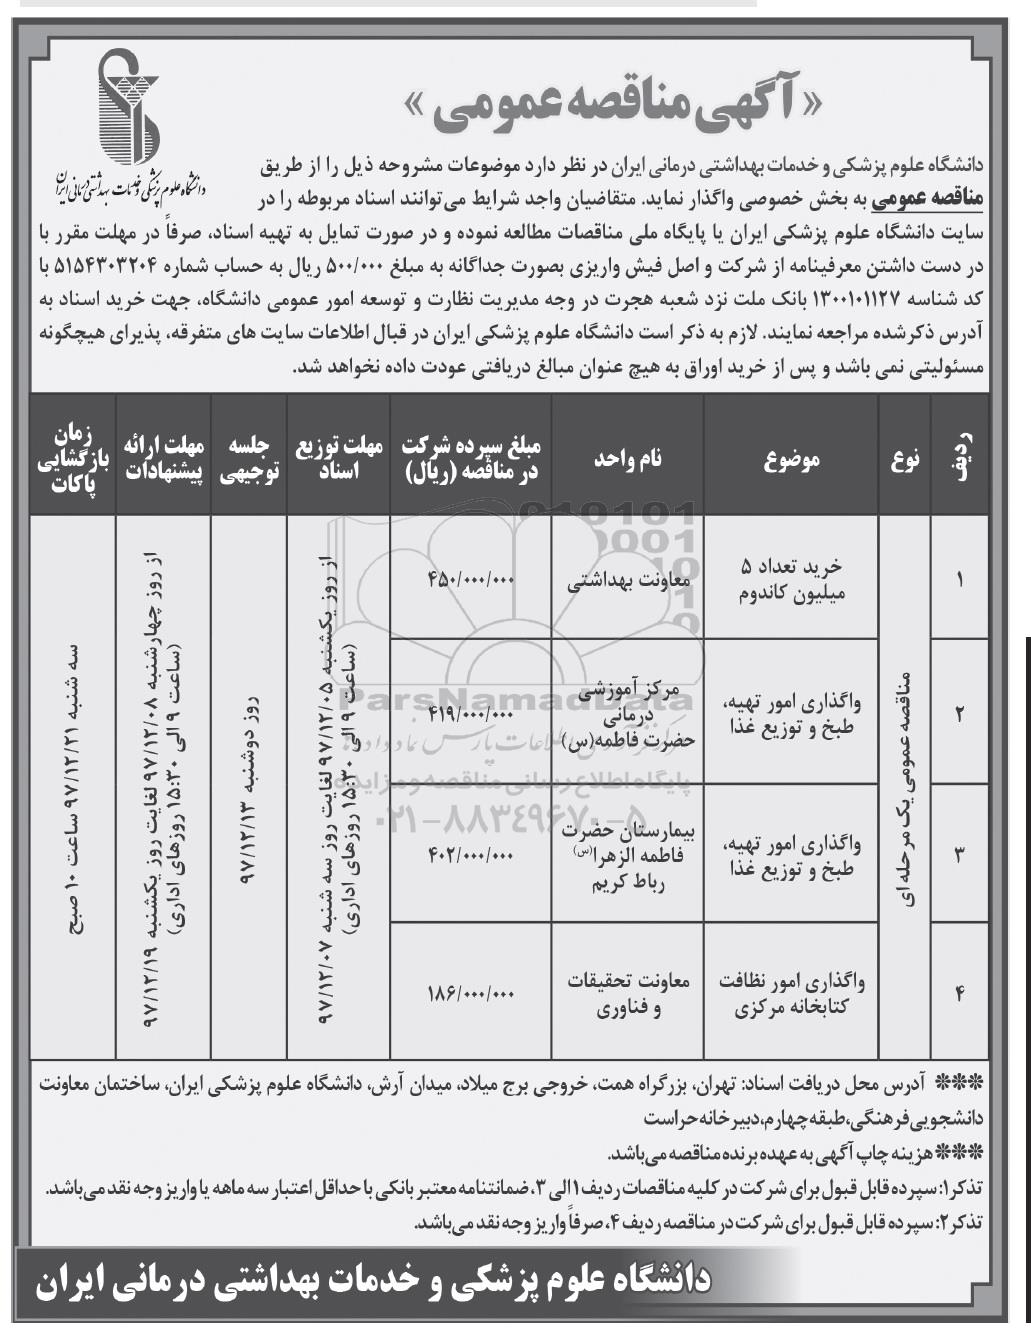 «آگهی مناقصه عمومی»
دانشگاه علوم پزشکی و خدمات بهداشتی درمانی ایران
دانشگاه علوم پزشکی و خدمات بهداشتی درمانی ایران در نظر دارد موضوعات مشروحه ذیل را از طریق
مناقصه عمومی به بخش خصوصی واگذار نماید. متقاضیان واجد شرایط می‌توانند اسناد مربوطه را در
سایت دانشگاه علوم پزشکی ایران یا پایگاه ملی مناقصات مطالعه نموده و در صورت تمایل به تهیه اسناد، صرفاً در مهلت مقرر با
در دست داشتن معرفینامه از شرکت و اصل فیش واریزی بصورت جداگانه به مبلغ ۵۰۰/۰۰۰ ریال به حساب شماره ۵۱۵۴۳۰۳۲۰۴ با
کد شناسه ۱۳۰۰۱۰۱۱۲۷ بانک ملت نزد شعبه هجرت در وجه مدیریت نظارت و توسعه امور عمومی دانشگاه، جهت خرید اسناد به
آدرس ذکرشده مراجعه نمایند. لازم به ذکر است دانشگاه علوم پزشکی ایران در قبال اطلاعات سایت های متفرقه، پذیرای هیچگونه
مسئولیتی نمی باشد و پس از خرید اوراق به هیچ عنوان مبالغ دریافتی عودت داده نخواهد شد.
ردیف
نوع
موضوع
نام واحد
مبلغ سپرده شرکت
در مناقصه (ریال)
مهلت توزیع
اسناد
جلسه
توجیهی
مهلت ارائه
پیشنهادات
زمان
بازگشایی
پاکات
۱
مناقصه عمومی یک مرحله ای
خرید تعداد ۵
میلیون کاندوم
معاونت بهداشتی
۴۵۰/۰۰۰/۰۰۰
از روز یکشنبه ۹۷/۱۲/۰۵ لغایت روز سه شنبه ۹۷/۱۲/۰۷
(ساعت ۹ الی ۱۵:۳۰ روزهای اداری)
روز دوشنبه ۹۷/۱۲/۱۳
از روز چهارشنبه ۹۷/۱۲/۰۸ لغایت روز یکشنبه ۹۷/۱۲/۱۹
(ساعت ۹ الی ۱۵:۳۰ روزهای اداری)
سه شنبه ۹۷/۱۲/۲۱ ساعت ۱۰ صبح
۲
واگذاری امور تهیه،
طبخ و توزیع غذا
مرکز آموزشی
درمانی
حضرت فاطمه(س)
۴۱۹/۰۰۰/۰۰۰
۳
واگذاری امور تهیه،
طبخ و توزیع غذا
بیمارستان حضرت
فاطمه الزهرا(س)
رباط کریم
۴۰۲/۰۰۰/۰۰۰
۴
واگذاری امور نظافت
کتابخانه مرکزی
معاونت تحقیقات
و فناوری
۱۸۶/۰۰۰/۰۰۰
ParsNamadData
مرکز فرآوری اطلاعات پارس نماد داده ها
پایگاه اطلاع رسانی مناقصه و مزایده
۰۲۱-۸۸۳۴۹۶۷۰-۵
*** آدرس محل دریافت اسناد: تهران، بزرگراه همت، خروجی برج میلاد، میدان آرش، دانشگاه علوم پزشکی ایران، ساختمان معاونت
دانشجویی فرهنگی، طبقه چهارم، دبیرخانه حراست
*** هزینه چاپ آگهی به عهده برنده مناقصه می‌باشد.
تذکر۱: سپرده قابل قبول برای شرکت در کلیه مناقصات ردیف ۱ الی ۳، ضمانتنامه معتبر بانکی با حداقل اعتبار سه ماهه یا واریز وجه نقد می‌باشد.
تذکر۲: سپرده قابل قبول برای شرکت در مناقصه ردیف ۴، صرفاً واریز وجه نقد می‌باشد.
دانشگاه علوم پزشکی و خدمات بهداشتی درمانی ایران